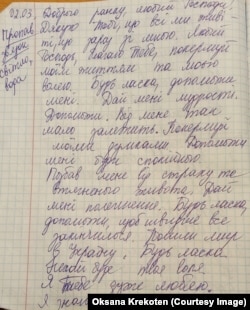 02.03
Пропав
звʼязок
світло,
вода
Доброго ранку, любий Господи.
Дякую Тобі, що всі ми живі
ті, що зараз зі мною. Любий
Господь, благаю Тебе, покеруй
моїм життям та моєю
волею. Будь ласка, допоможи
мені. Дай мені мудрості.
Допоможи. Від мене так
мало залежить. Покеруй
моїми думками. Допоможи
мені бути спокійною.
Позбав мене від страху та
животa. Дай
мені полегшення. Будь ласка,
допоможи, щоб швидше все
закінчилося. Дай мир
в Україну, будь ласка
Нехай буде твоя воля.
Я Тебе дуже люблю.
Я
Oksana Krekoten (Courtesy Image)